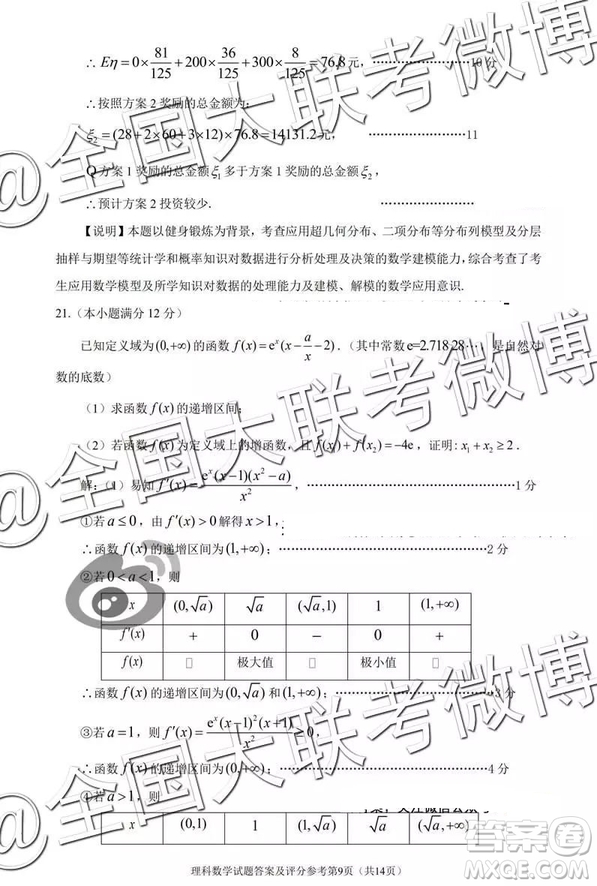 ∴ Eη=0×81/125+200×36/125+300×8/125=76.8元，························10分
∴按照方案2奖励的总金额为：
ξ₂=(28+2×60+3×12)×76.8=14131.2元， ························11
Q方案1奖励的总金额ξ₁多于方案1奖励的总金额ξ₂，
∴预计方案2投资较少. ························
【说明】本题以健身锻炼为背景，考查应用超几何分布、二项分布等分布列模型及分层
抽样与期望等统计学和概率知识对数据进行分析处理及决策的数学建模能力，综合考查了考
生应用数学模型及所学知识对数据的处理能力及建模、解模的数学应用意识.
21.（本小题满分12分）
已知定义域为(0,+∞)的函数f(x)=eˣ(x−a/x−2).（其中常数e=2.718 28···是自然对
数的底数）
（1）求函数f(x)的递增区间；
（2）若函数f(x)为定义域上的增函数，且f(x₁)+f(x₂)=−4e，证明：x₁+x₂≥2.
解：（1）易知f′(x)=eˣ(x−1)(x²−a)/x²，························1分
①若a≤0，由f′(x)>0解得x>1，
∴函数f(x)的递增区间为(1,+∞)；························2分
②若0<a<1，则
x (0,√a) √a (√a,1) 1 (1,+∞)
f′(x) + 0 − 0 +
f(x) □ 极大值 □ 极小值 □
∴函数f(x)的递增区间为(0,√a)和(1,+∞)；························3分
③若a=1，则f′(x)=eˣ(x−1)²(x+1)/x²≥0，
∴函数f(x)的递增区间为(0,+∞)；························4分
④若a>1，则
x (0,1) 1 (1,√a) √a (√a,+∞)
理科数学试题答案及评分参考第9页（共14页）
@全国大联考微博
@全国大联考微博
答案圈
MXQE.COM